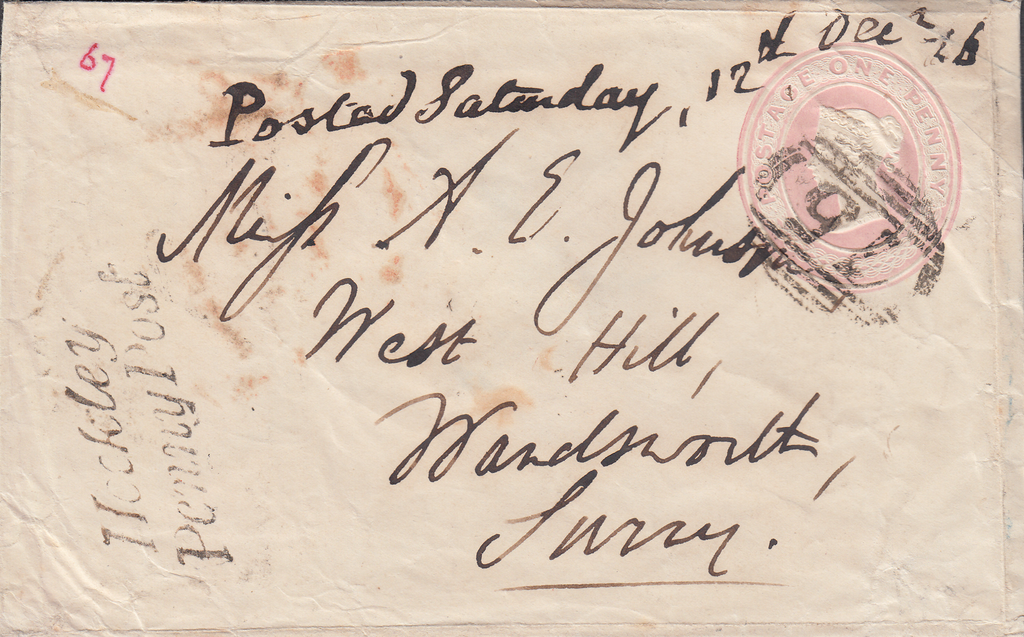 67
Posted Saturday, 12th Decr /46
POSTAGE ONE PENNY
Miss A. E. Johnson
West Hill,
Wandsworth,
Surry.
Hockley
Penny Post